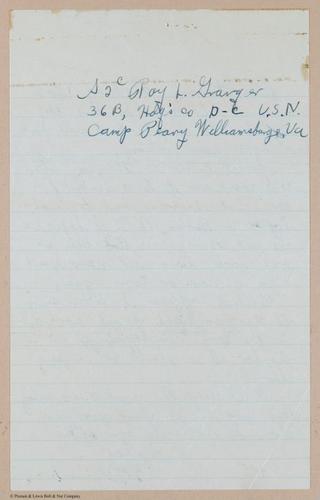 S 2c Roy L. Granger
36 B, Hdq's Co D-C U.S.N.
Camp Peary Williamsburg, Va
© Pioneer & Lewis Bolt & Nut Company